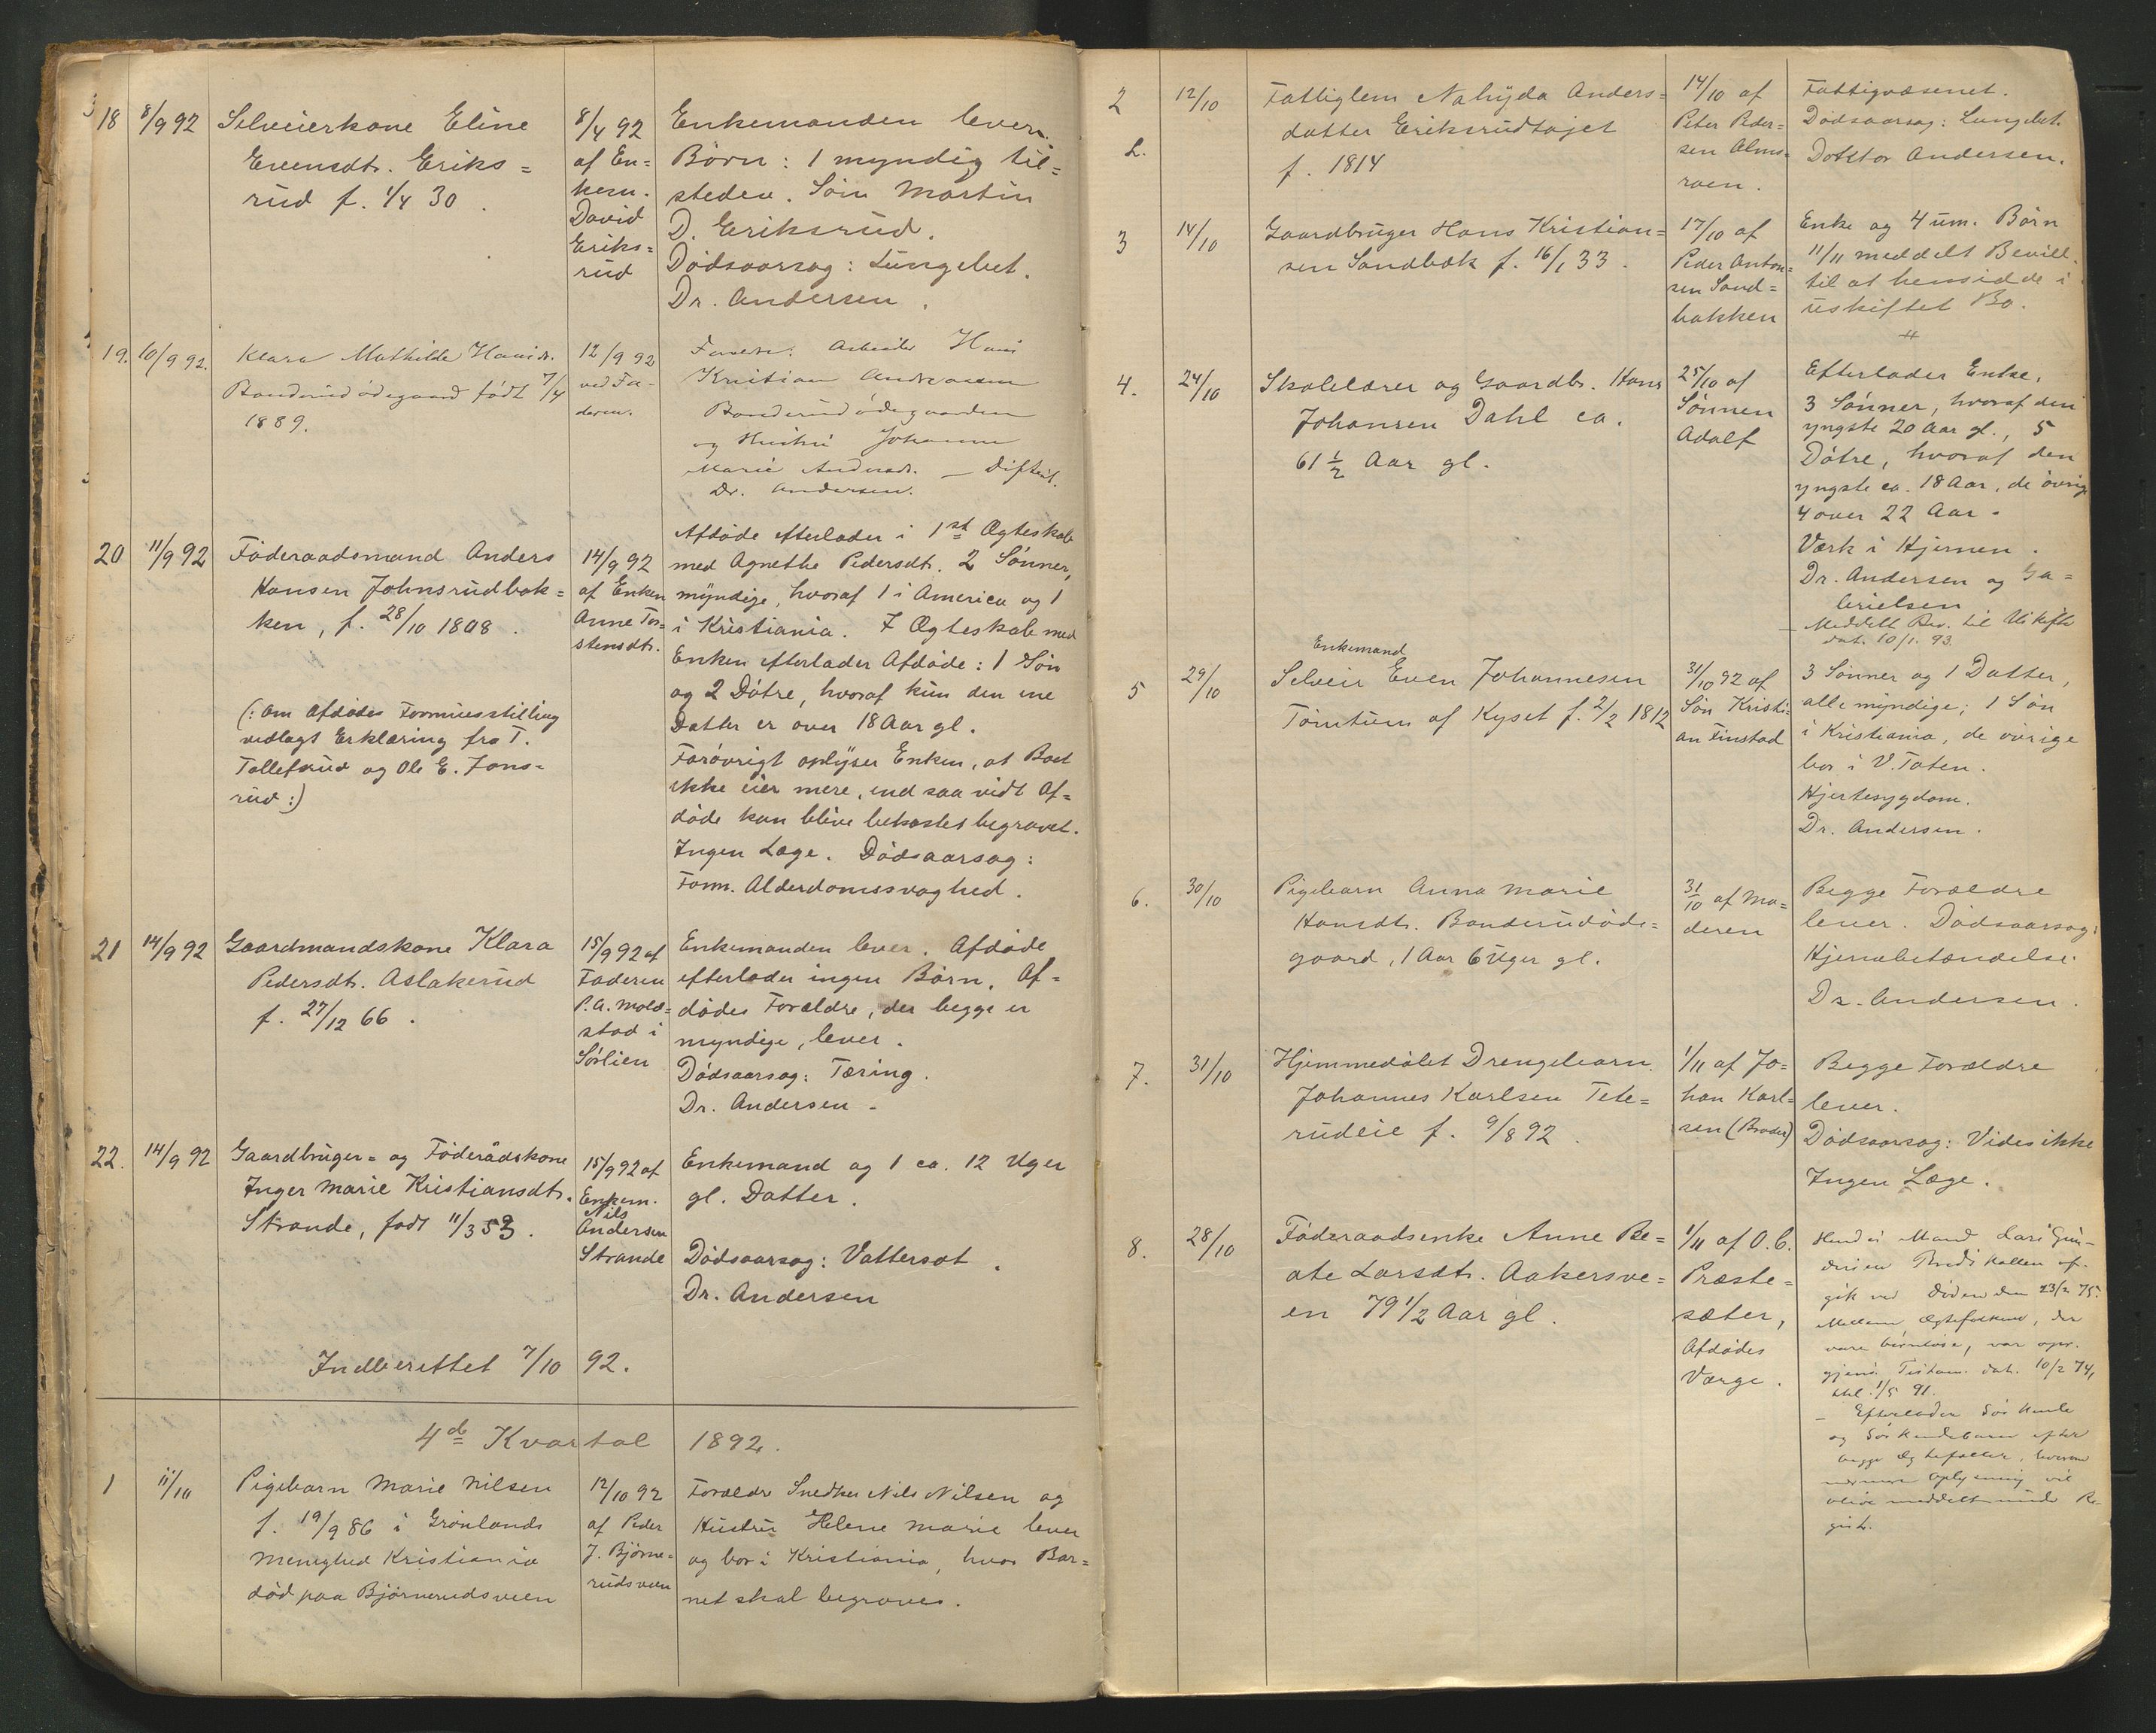 18
8/9 92
Selveierkone Eline
Evensdtr. Eriks=
rud f. 1/4 30.
8/4 92
af En=
kem.
David
Eriks=
rud
Enkemanden lever.
Børn: 1 myndig til=
stede. Søn Martin
D. Eriksrud.
Dødsaarsag: Lungebet.
Dr. Andersen.
19.
10/9 92.
Klara Mathilde Hansdr.
Banderudødegaard født 7/4
1889.
12/9 92
ved Fa-
deren.
Arbeider Hans
Kristian Andreassen
Banderudødegaarden
og Hustru Johanne
Marie Andersdr. — Difterit.
Dr. Andersen.
20
11/9 92
Føderaadsmand Anders
Hansen Johnsrudbak=
ken, f. 28/10 1808.
(: Om Afdødes Formuesstilling
vedlagt Erklæring fra T.
Tollefsrud og Ole E. Jons=
rud :)
14/9 92
af Enken
Anne Tos=
stensdtr.
Afdøde efterlader i 1st Ægteskab
med Agnethe Pedersdtr. 2 Sønner,
myndige, hvoraf 1 i America og 1
i Kristiania. I Ægteskab med
Enken efterlader Afdøde: 1 Søn
og 2 Døtre, hvoraf kun den ene
Datter er over 18 Aar gl.
Forøvrigt oplyser Enken, at Boet
ikke eier mere, end saa vidt Af=
døde kan blive bekostet begravet.
Ingen Læge. Dødsaarsag:
Form. Alderdomssvaghed.
21
14/9 92
Gaardmandskone Klara
Pedersdtr. Aslakerud
f. 27/12 66.
15/9 92 af
Faderen
P. A. Mold=
stad i
Sørlien
Enkemanden lever. Afdøde
efterlader ingen Børn. Af=
dødes Forældre, der begge er
myndige, lever.
Dødsaarsag: Tæring.
Dr. Andersen.
22.
14/9 92
Gaardbruger= og Føderådskone
Inger Marie Kristiansdtr.
Strande, født 11/3 53.
15/9 92 af
Enkem.
Nils
Andersen
Strande
Enkemand og 1 ca. 12 Uger
gl. Datter.
Dødsaarsag: Vattersot.
Dr. Andersen
Indberettet 7/10 92.
4de Kvartal 1892.
1
11/10
Pigebarn Marie Nilsen
f. 19/9 86 i Grønlands
Menighed Kristiania
død paa Bjørnerudsveen
12/10 92
af Peder
J. Bjørne=
rudsveen
Forældre Snedker Nils Nilsen og
Hustru Helene Marie lever
og bor i Kristiania, hvor Bar=
net skal begraves.
2
12/10
Fattiglem Nahyda Anders=
datter Eriksrudtajet
f. 1814
14/10 af
Peter Peder=
sen Alms=
roen.
Fattigvæsenet.
Dødsaarsag: Lungebet.
Doktor Andersen.
3
14/10
Gaardbruger Hans Kristian=
sen Sandbæk f. 16/1 33.
17/10 af
Peder Anton=
sen Sand=
bakken
Enke og 4 um. Børn
11/11 meddelt Bevill.
til at hensidde i
uskiftet Bo.
4.
24/10
Skolelærer og Gaardbr. Hans
Johansen Dahl ca.
61 1/2 Aar gl.
25/10 af
Sønnen
Adolf
Efterlader Enke,
3 Sønner, hvoraf den
yngste 20 Aar gl., 5
Døtre, hvoraf den
yngste ca. 18 Aar, de øvrige
4 over 22 Aar.
Værk i Hjernen.
Dr. Andersen og Ga=
brielsen
— Meddelt Bev. til Uskifte
dat. 10/1. 93.
5
29/10
Enkemand
Selveir Even Johannesen
Tømtum af Kyset f. 2/2 1812
31/10 92 af
Søn Kristi=
an Finstad
3 Sønner og 1 Datter,
alle myndige; 1 Søn
i Kristiania, de øvrige
bor i V. Toten.
Hjertesygdom.
Dr. Andersen.
6.
30/10
Pigebarn Anna Marie
Hansdtr. Banderudøde=
gaard, 1 Aar 6 Uger gl.
31/10 af Mo=
deren
Begge Forældre
lever. Dødsaarsag:
Hjernebetændelse.
Dr. Andersen.
7.
31/10
Hjemmedøbt Drengebarn
Johannes Karlsen Tete=
rudeie f. 9/8 92.
1/11 af Jo=
han Karl=
sen (Broder)
Begge Forældre
lever.
Dødsaarsag: Vides ikke
Ingen Læge.
8.
28/10
Føderaadsenke Anne Be=
ate Larsdtr. Aakersve=
en 79 1/2 Aar gl.
1/11 af O. C.
Præste=
sæter,
Afdødes
Værge.
Hendes Mand Lars Gun-
dersen af-
gik ved Døden den 23/2 75.
Mellem Ægtefolkene, der
vare barnløse, var opr.
gjens. Testam. dat. 10/2 74,
1/5 91.
— Efterlader Søskende
og Søskendebarn efter
begge Ægtefæller, hvorom
nærmere Oplysning vil
blive meddelt under Re-
gist.